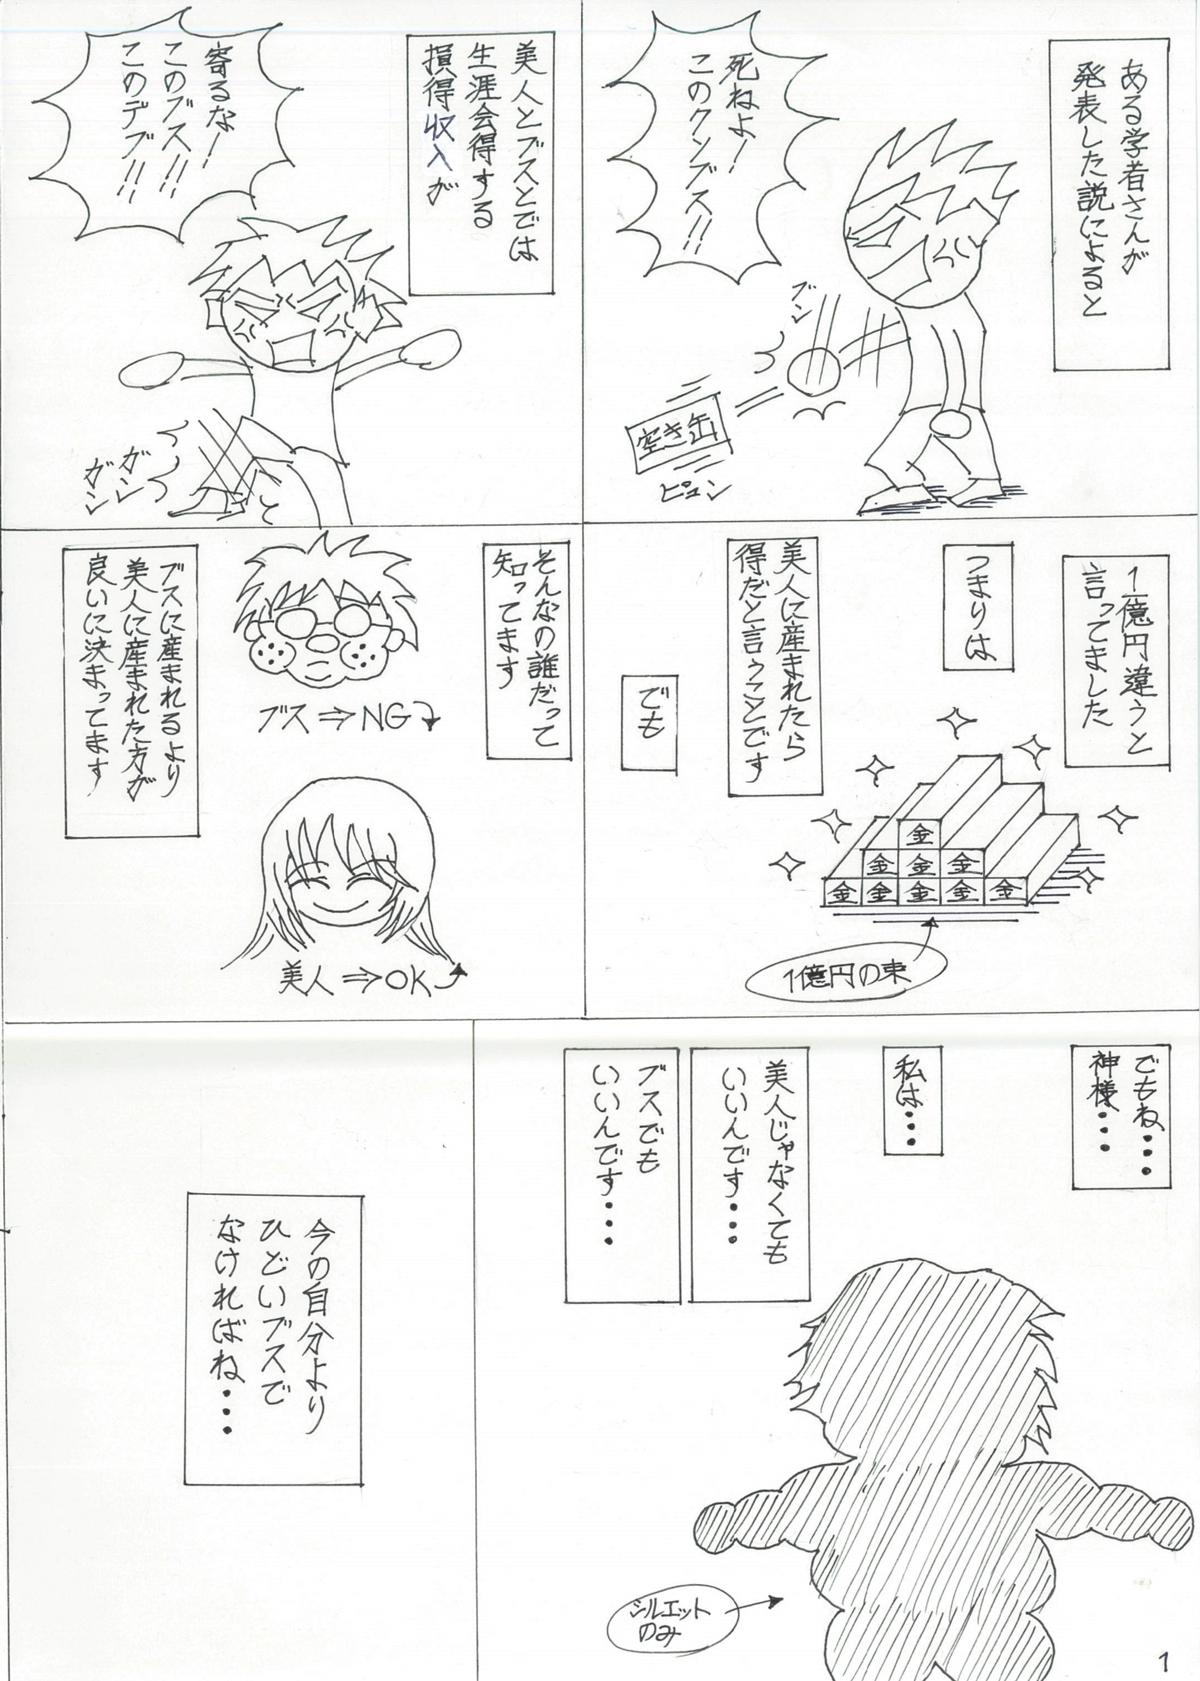 ある学者さんが
発表した説によると
死ねよ！
このクソブス!!
ブン
空き缶
ピュン
美人とブスとでは
生涯会得する
損得収入が
寄るな！
このブス!!
このデブ!!
ガン
ガン
1億円違うと
言ってました
つまりは
美人に産まれたら
得だと言うことです
でも
金
金金金
金金金金金
1億円の束
そんなの誰だって
知ってます
ブス⇒NG
美人⇒OK
ブスに産まれるより
美人に産まれた方が
良いに決まってます
でもね・・・
神様・・・
私は・・・
美人じゃなくても
いいんです・・・
ブスでも
いいんです・・・
シルエット
のみ
今の自分より
ひどいブスで
なければね・・・
1